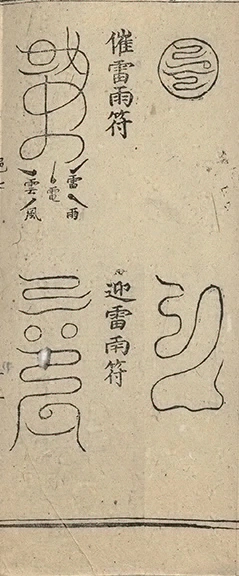 催雷雨符
雷
雨
電
雲
風
迎雷雨符